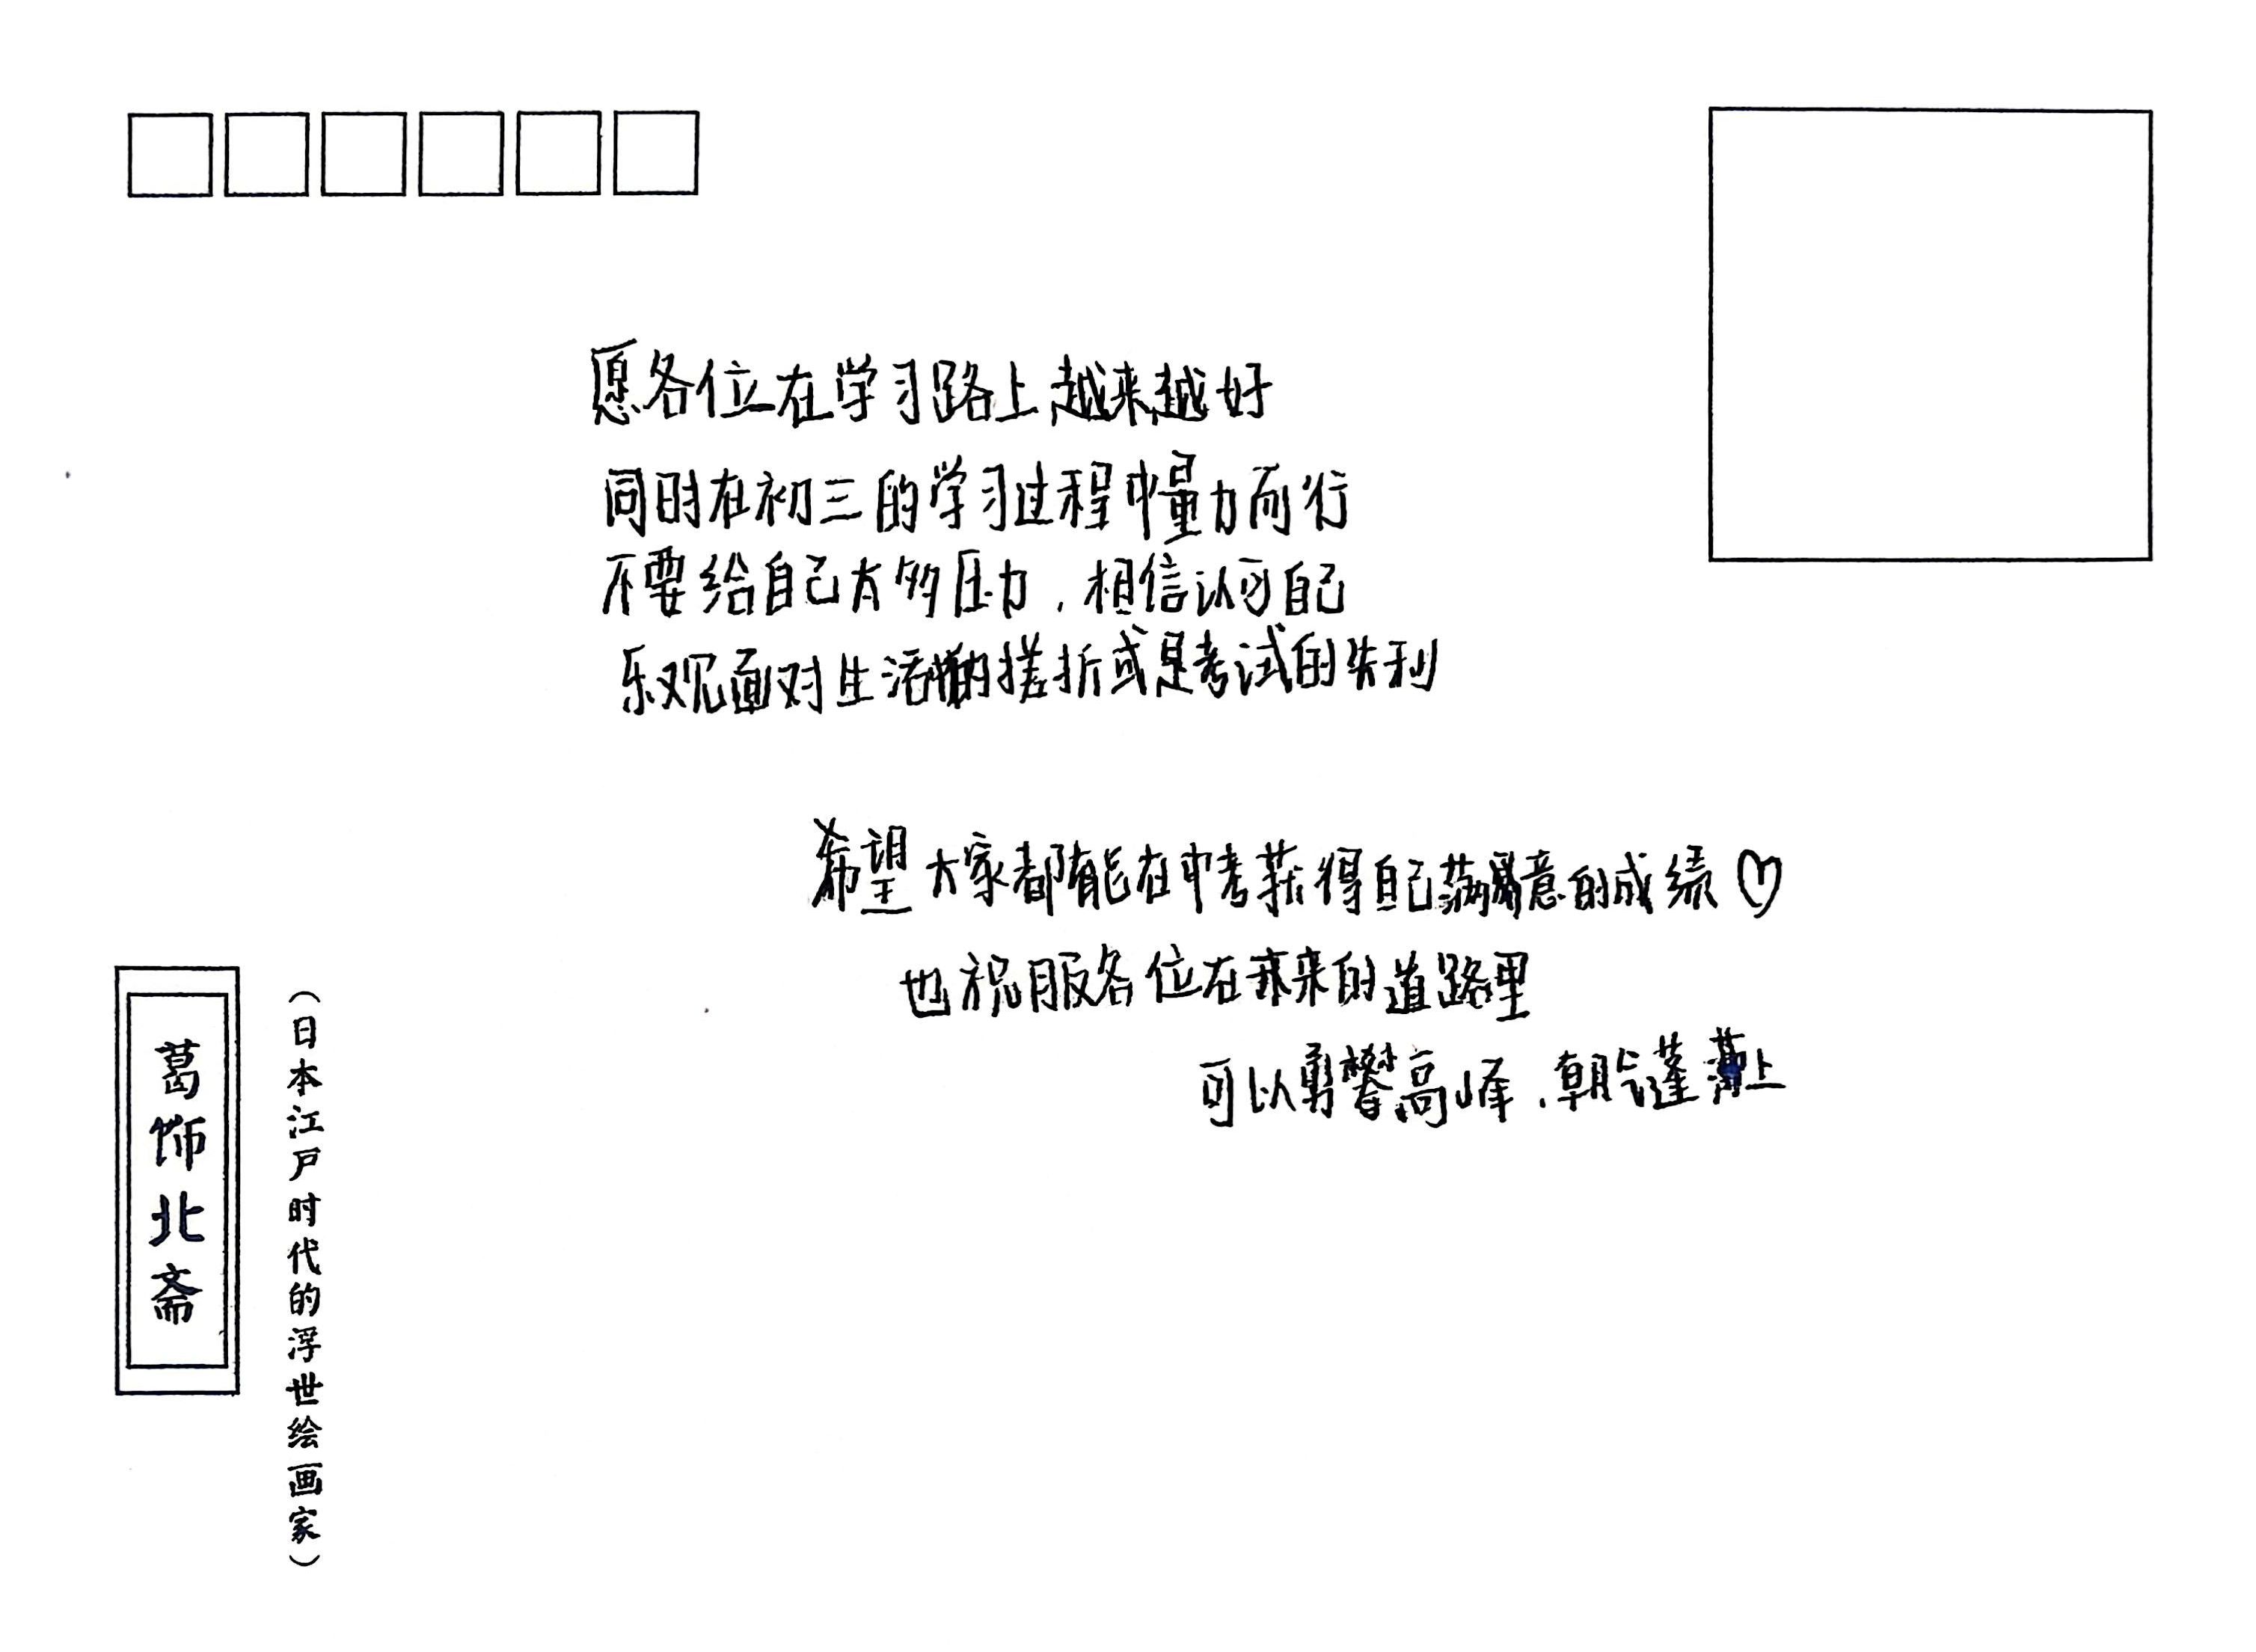 愿各位在学习路上越来越好
同时在初三的学习过程中量力而行
不要给自己太多压力，相信认可自己
乐观面对生活中的搓折或是考试的失利
希望大家都能在中考获得自己满意的成绩♡
也祝服各位在未来的道路里
可以勇攀高峰，朝气蓬上
葛饰北斋
（日本江户时代的浮世绘画家）